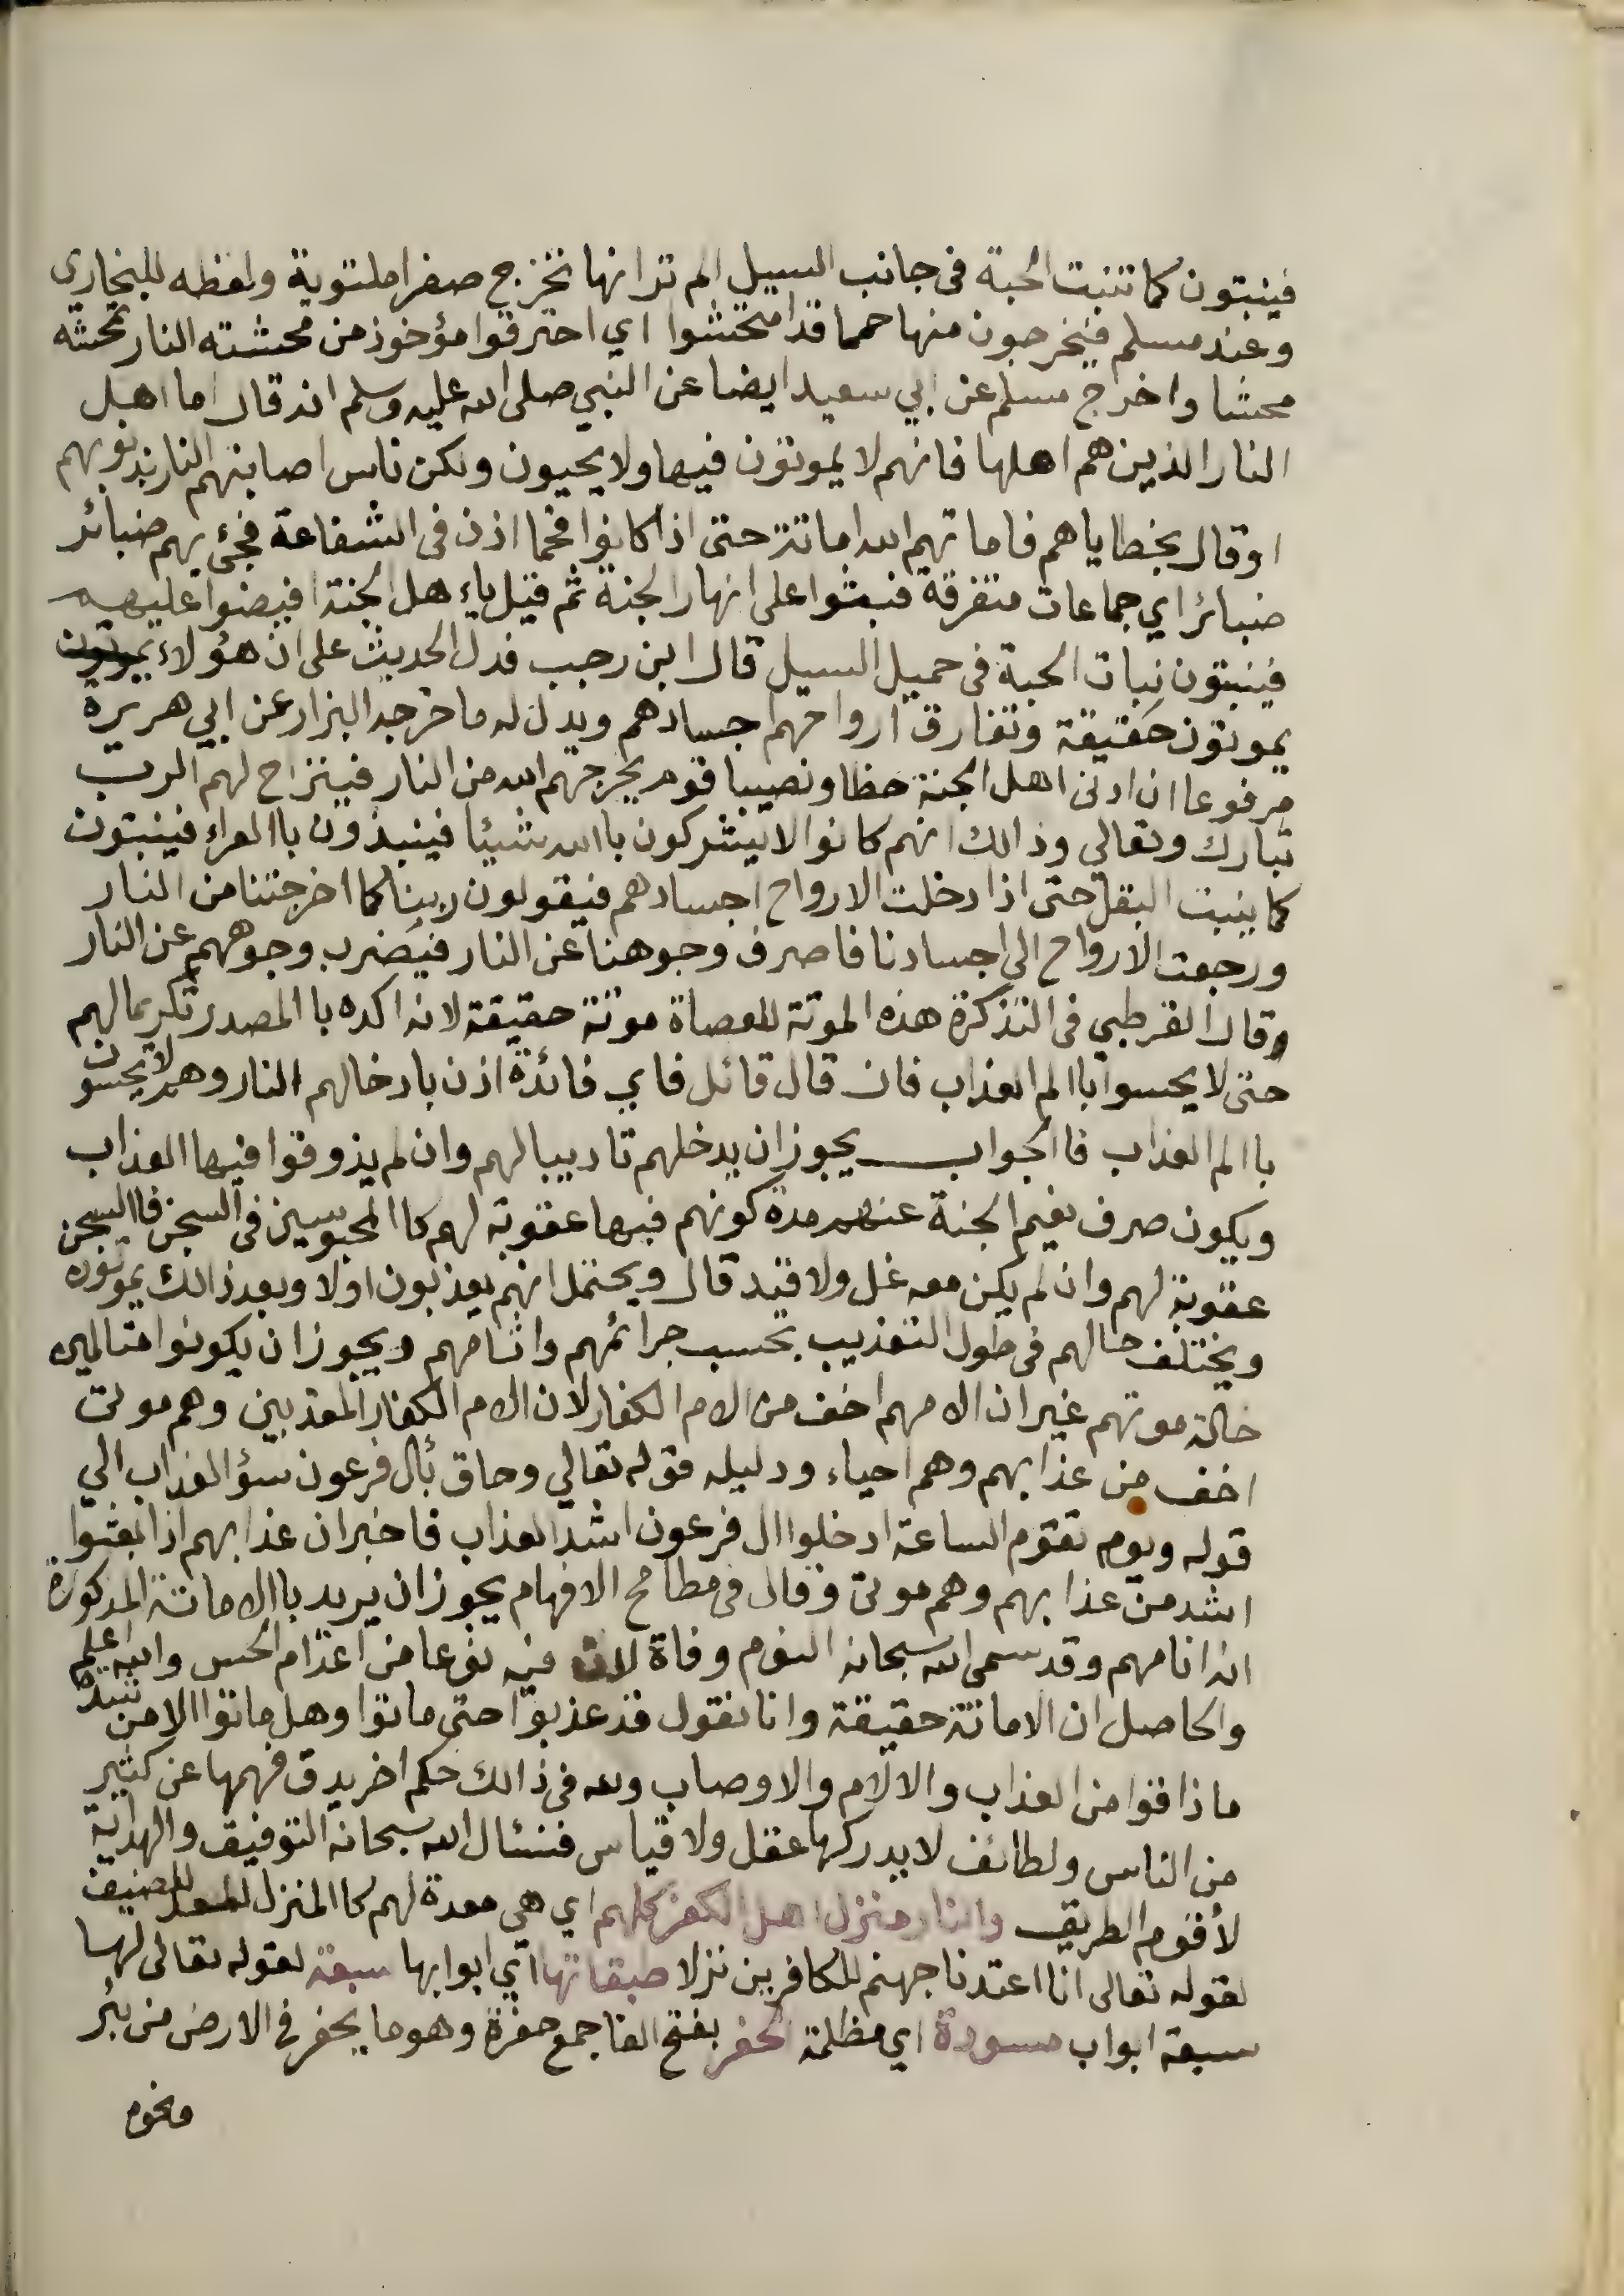 فينبتون كما تنبت الحبة فى جانب السيل الم ترانها تخرج صفراملتوية ولفظه للبخارى
وعند مسلم فيخرجون منها حمما قد امتحشوا اي احترقوا مؤخوذ من محشته النار تمحشه
محشا واخرج مسلم عن ابي سعيد ايضا عن النبي صلى الله عليه وسلم انه قال اما اهل
النار الذين هم اهلها فانهم لا يموتون فيها ولا يحيون ولكن ناس اصابتهم النار بذنوبهم
او قال بخطاياهم فاماتهم الله اماتة حتى اذا كانوا فحما اذن فى الشفاعة فجئ بهم ضبائر
ضبائر اي جماعات متفرقة فبثوا على انهار الجنة ثم قيل ياء هل الجنة افيضوا عليهم
فينبتون نبات الحبة فى حميل السيل قال ابن رجب فدل الحديث على ان هؤلاء يموتون
يموتون حقيقة وتفارق ارواحهم اجسادهم ويدل له ما خرجه البزار عن ابي هريرة
مرفوعا ان ادنى اهل الجنة حظا ونصيبا قوم يخرجهم الله من النار فينزاح لهم الرب
تبارك وتعالي وذالك انهم كانوا لا يشركون باالله شيئا فينبذون باالعراء فينبتون
كما ينبت البقل حتى اذا دخلت الارواح اجسادهم فيقولون ربنا كما اخرجتنا من النار
ورجعت الارواح الي اجسادنا فاصرف وجوهنا عن النار فيضرب وجوههم عن النار
وقال القرطبي فى التذكرة هذه الموتة للعصاة موتة حقيقة لانه اكده باالمصدر تكريما لهم
حتى لا يحسوا باالم العذاب فان قال قائل فاي فائدة اذن بادخالهم النار وهم لا يحسون
باالم العذاب فاالجواب يجوز ان يدخلهم تاديبا لهم وان لم يذوقوا فيها العذاب
ويكون صرف نعيم الجنة عنهم مدة كونهم فيها عقوبة لهم كاالمحبوسين فى السجن فاالسجن
عقوبة لهم وان لم يكن معه غل ولا قيد قال ويحتمل انهم يعذبون اولا وبعد ذالك يموتون
ويختلف حالهم فى طول التعذيب بحسب جرائمهم واثامهم ويجوز ان يكونوا متالمين
حالة موتهم غير ان الامهم اخف من الام الكفار لان الام الكفار المعذبين وهم موتى
اخف من عذابهم وهم احياء ودليله قوله تعالي وحاق بأل فرعون سؤ العذاب الي
قوله ويوم تقوم الساعة ادخلوا ال فرعون اشد العذاب فاخبر ان عذابهم اذا بعثوا
اشد من عذابهم وهم موتى وقال فى مطامح الافهام يجوز ان يريد باالاماتة المذكورة
انه انامهم وقد سمى الله سبحانه النوم وفاة لان فيه نوعا من اعدام الحس والله اعلم
والحاصل ان الاماتة حقيقة وانا نقول قد عذبوا حتى ماتوا وهل ماتوا الا من شدة
ماذاقوا من العذاب والالام والاوصاب ولله فى ذالك حكم اخر يدق فهمها عن كثير
من الناس ولطائف لا يدركها عقل ولا قياس فنسئال الله سبحانه التوفيق والهداية
لأقوم الطريق والنار منزل اهل الكفر كلهم اي هي معدة لهم كاالمنزل المعد للضيف
لقوله تعالى انا اعتدنا جهنم للكافرين نزلا طبقاتها اي ابوابها سبعة لقوله تعالى لها
سبعة ابواب مسودة اي مظلمة الحفر بفتح الفا جمع حفرة وهو ما يحفر فى الارض من بئر
ونحوه